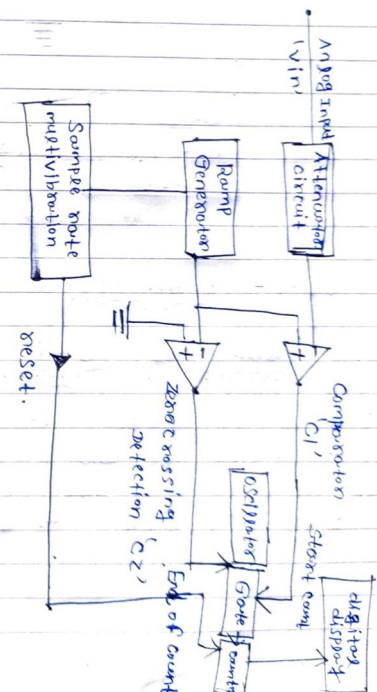 Analog Input
'Vin'
Attenuator
circuit
Ramp
Generator
Sample rate
multivibrator
reset.
Comparator
C1'
Zero crossing
Detection 'C2'
Oscillator
Start count
Gate
End of count
digital
display